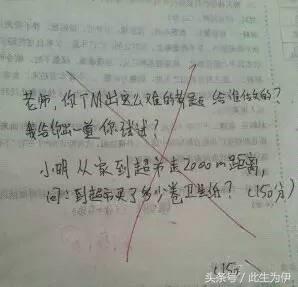 老师,你TM出这么难的数题给谁做的?
我给你出一道你试试?
小明从家到超市走2000m距离,
问:到超市买了多少卷卫生纸?(150分)
头条号/此生为伊